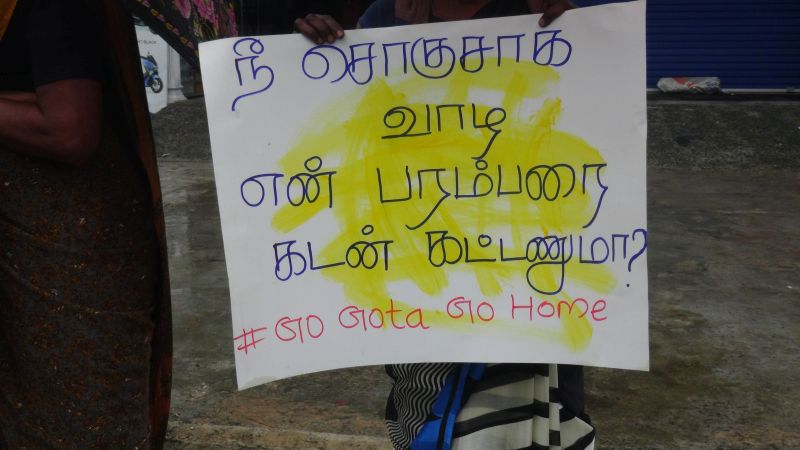 நீ சொகுசாக
வாழ
என் பரம்பரை
கடன் கட்டணுமா?
#GO GOta GO Home